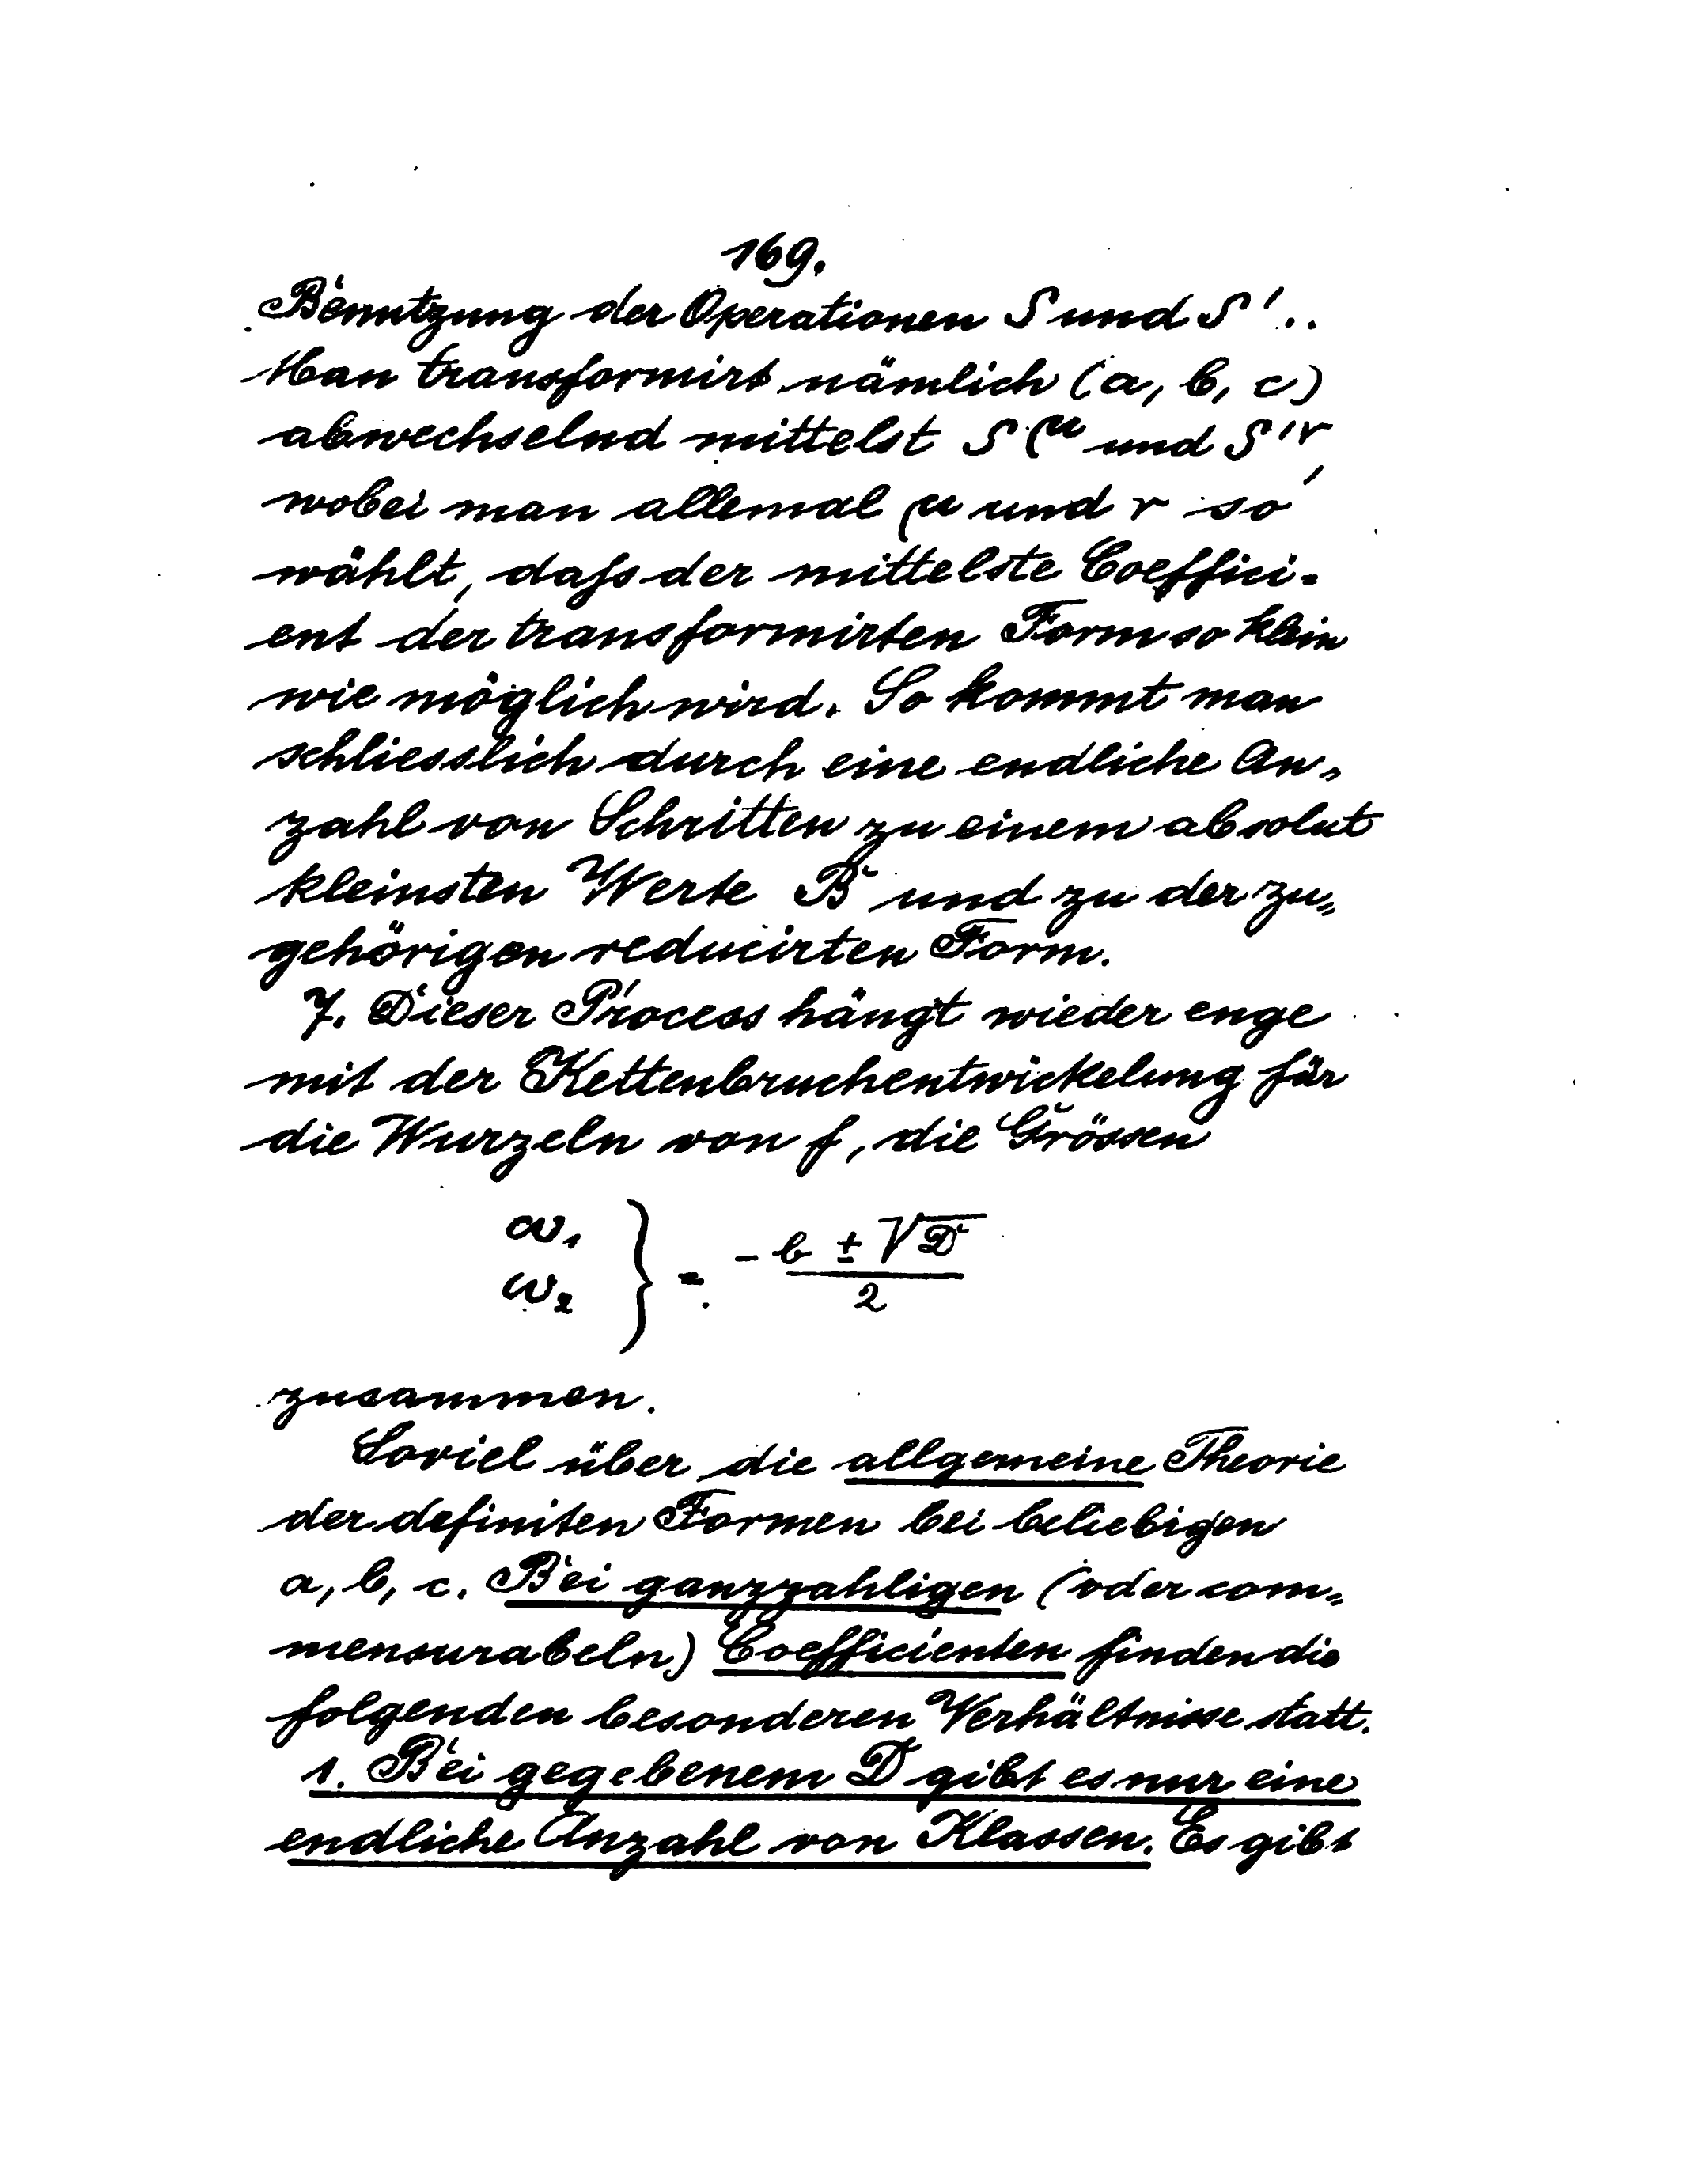 169.
Benutzung der Operationen S und S'..
Man transformirt nämlich (a, b, c)
abwechselnd mittelst S^μ und S'^ν,
wobei man allemal μ und ν so
wählt, dafs der mittelste Coeffici-
ent der transformirten Form so klein
wie möglich wird. So kommt man
schliesslich durch eine endliche An-
zahl von Schritten zu einem absolut
kleinsten Werte B und zu der zu-
gehörigen reducirten Form.
7. Dieser Process hängt wieder enge
mit der Kettenbruchentwickelung für
die Wurzeln von f, die Grössen
ω₁ ω₂ } = (-b ± √D)/2
zusammen.
Soviel über die allgemeine Theorie
der definiten Formen bei beliebigen
a, b, c. Bei ganzzahligen (oder com-
mensurabeln) Coefficienten finden die
folgenden besonderen Verhältnisse statt.
1. Bei gegebenem D gibt es nur eine
endliche Anzahl von Klassen. Es gibt